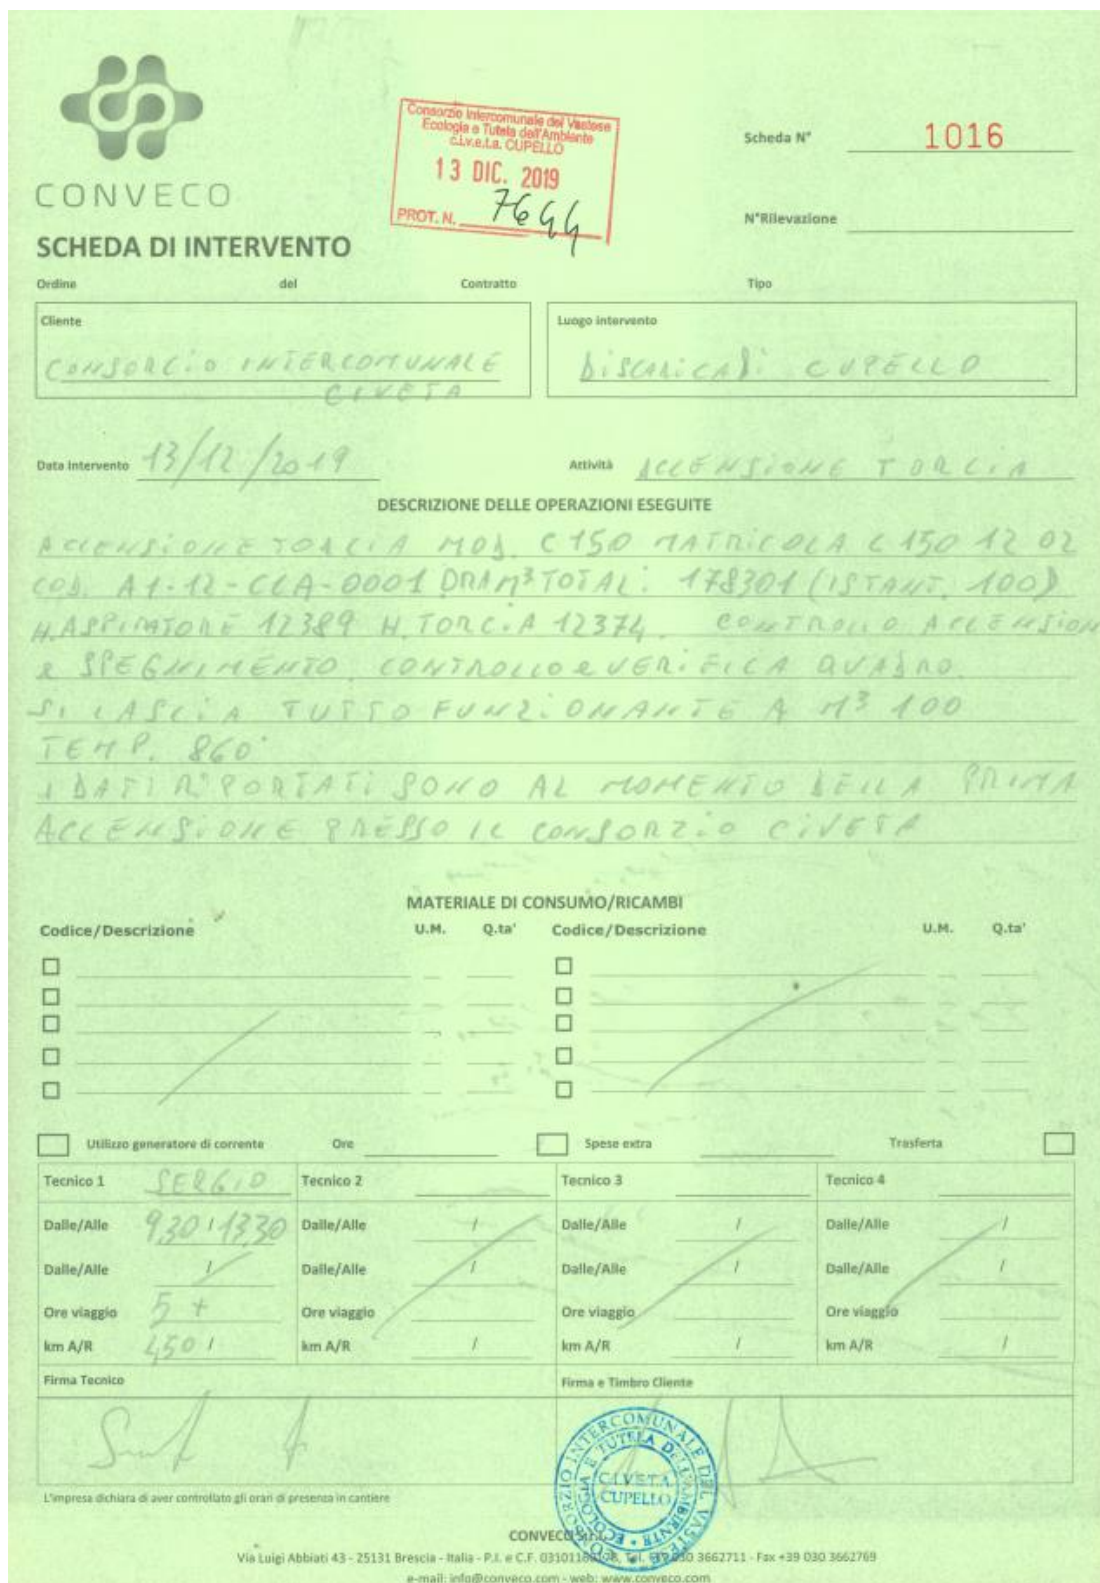 CONVECO
Consorzio Intercomunale del Vastese
Ecologia e Tutela dell'Ambiente
c.i.v.e.t.a. CUPELLO
13 DIC. 2019
PROT. N. 7644
Scheda N° 1016
N°Rilevazione
SCHEDA DI INTERVENTO
Ordine del Contratto Tipo
Cliente Luogo intervento
CONSORCIO INTERCOMUNALE DISCARICA DI CUPELLO
CIVETA
Data intervento 13/12/2019 Attività ACCENSIONE TORCIA
DESCRIZIONE DELLE OPERAZIONI ESEGUITE
ACCENSIONE TORCIA MOD. C150 MATRICOLA C150 12 02
COD. A1-12-CLA-0001 M³ TOTAL: 178301 (ISTANT. 100)
H.ASPIRATORE 12389 H.TORCIA 12374. CONTROLLO ACCENSION
e SPEGNIMENTO. CONTROLLO e VERIFICA QUADRO.
SI LASCIA TUTTO FUNZIONANTE A M³ 100
TEMP. 860°
I DATI RIPORTATI SONO AL MOMENTO DELLA PRIMA
ACCENSIONE PRESSO IL CONSORZIO CIVETA
MATERIALE DI CONSUMO/RICAMBI
Codice/Descrizione U.M. Q.ta' Codice/Descrizione U.M. Q.ta'
Utilizzo generatore di corrente Ore Spese extra Trasferta
Tecnico 1 SERGIO Tecnico 2 Tecnico 3 Tecnico 4
Dalle/Alle 9,30 / 13,30 Dalle/Alle / Dalle/Alle / Dalle/Alle /
Dalle/Alle / Dalle/Alle / Dalle/Alle / Dalle/Alle /
Ore viaggio 5 + Ore viaggio Ore viaggio Ore viaggio
km A/R 450 / km A/R / km A/R / km A/R /
Firma Tecnico Firma e Timbro Cliente
CONSORZIO INTERCOMUNALE DEL VASTESE
ECOLOGIA E TUTELA DELL'AMBIENTE
C.I.V.E.T.A.
CUPELLO
L'impresa dichiara di aver controllato gli orari di presenza in cantiere
CONVECO
Via Luigi Abbiati 43 - 25131 Brescia - Italia - P.I. e C.F. Tel. +39 030 3662711 - Fax +39 030 3662769
e-mail: info@conveco.com - web: www.conveco.com